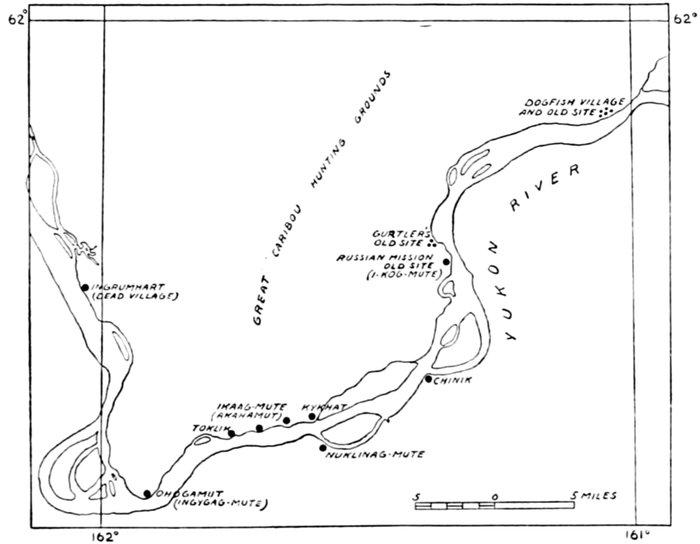 62°
62°
DOGFISH VILLAGE
AND OLD SITE
GREAT CARIBOU HUNTING GROUNDS
YUKON RIVER
GURTLER'S
OLD SITE
RUSSIAN MISSION
OLD SITE
(I-KOG-MUTE)
INGRUMHART
(DEAD VILLAGE)
CHINIK
IKAAG-MUTE
(AKAHAMUT)
KYKHAT
TOKLIK
NUKLINAG-MUTE
OHOGAMUT
(INGYGAG-MUTE)
5 0 5 MILES
162°
161°